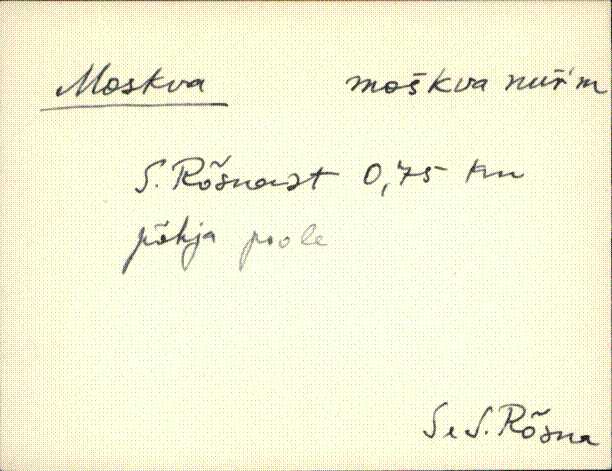 Moskva moškva nuŕm
S. Rõsnast 0,75 km
põhja poole
Se S. Rõsna